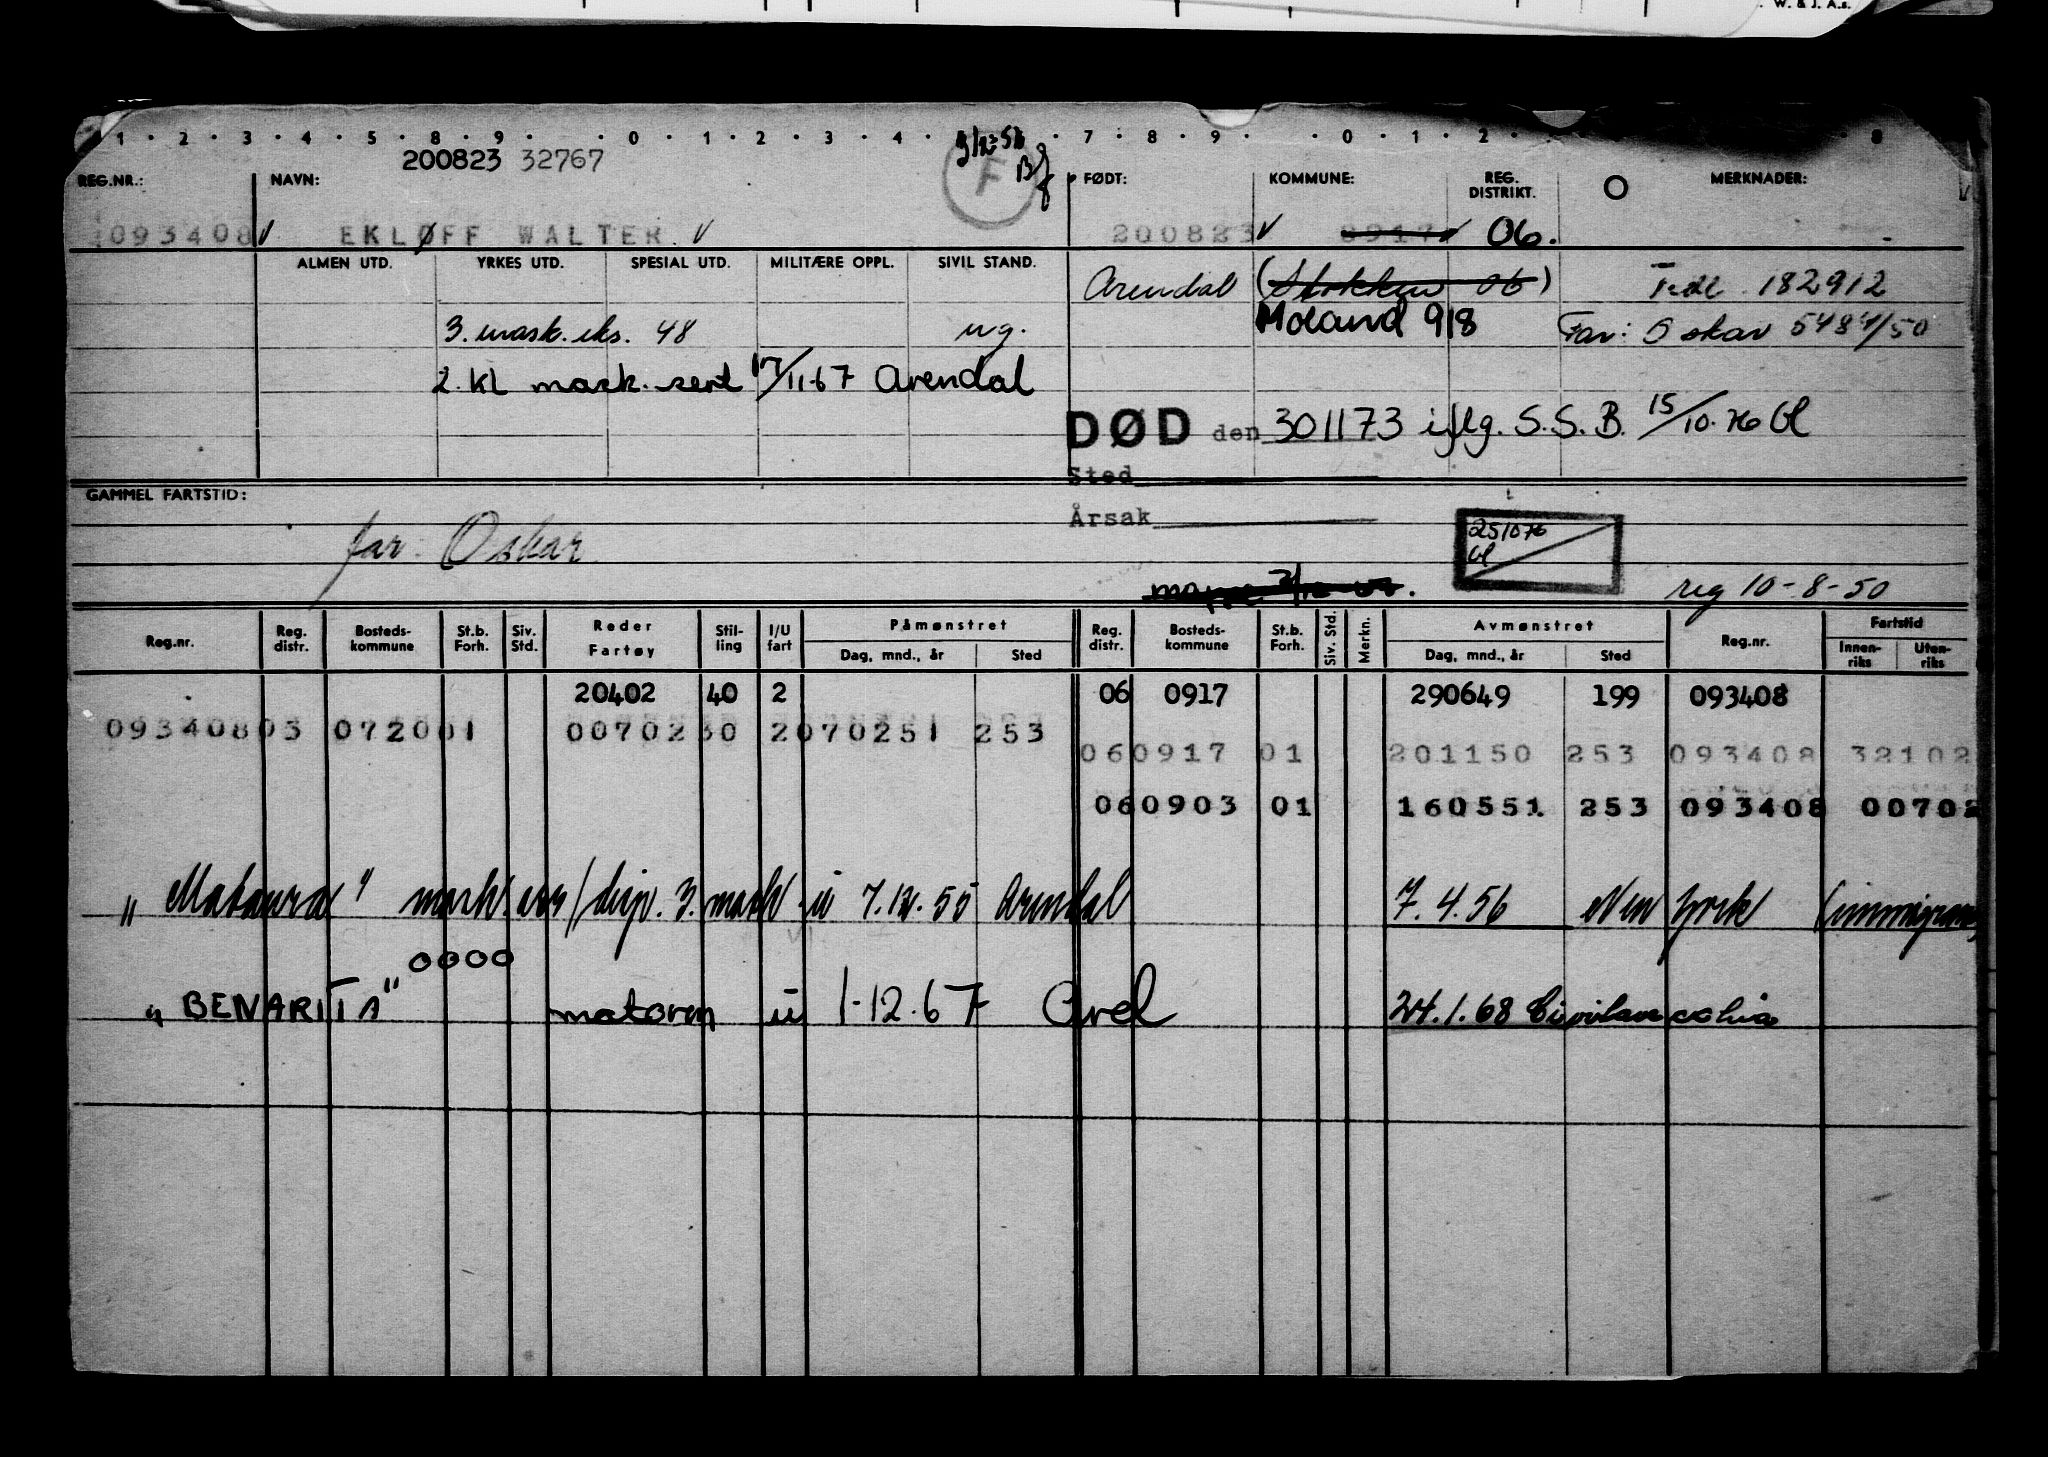 W. & J. A.s.
1 · 2 · 3 · 4 · 5 · 8 · 9 · · 0 · 1 · 2 · 3 · 4 · · 7 · 8 · 9 · · 0 · 1 · 2 · 8
200823 32767
F
REG.NR.: NAVN: FØDT: KOMMUNE: REG. DISTRIKT. O MERKNADER:
093408 EKLØFF WALTER 200823 0917 06.
ALMEN UTD. YRKES UTD. SPESIAL UTD. MILITÆRE OPPL. SIVIL STAND.
Arendal (Stokken 06) 182912
3. mask.eks. 48 ug. Moland 918 Far: Oskar 5484/50
2. kl mask. sert 17/11-67 Arendal
DØD den 301173 iflg. S.S.B. 15/10.76 Gl
Sted
GAMMEL FARTSTID:
Årsak
251076
Gl
far: Oskar
reg 10-8-50
Reg.nr. Reg. distr. Bosteds- kommune St.b. Forh. Siv. Std. Reder Fartøy Stil- ling I/U fart Påmønstret Dag, mnd., år Sted Reg. distr. Bosteds- kommune St.b. Forh. Siv. Std. Merkn. Avmønstret Dag, mnd., år Sted Reg.nr. Fartstid Innen- riks Uten- riks
20402 40 2 06 0917 290649 199 093408
093408 03 0720 01 00702 30 2 070251 253
06 0917 01 201150 253 093408 32102
06 0903 01 160551 253 093408 00702
"Mataura" mask.ass/disp. 3. mask. u 7.12.55 Arendal 7.4.56 New York
0000
"BENARITA" motorm u 1-12.67 Arel 24.1.68